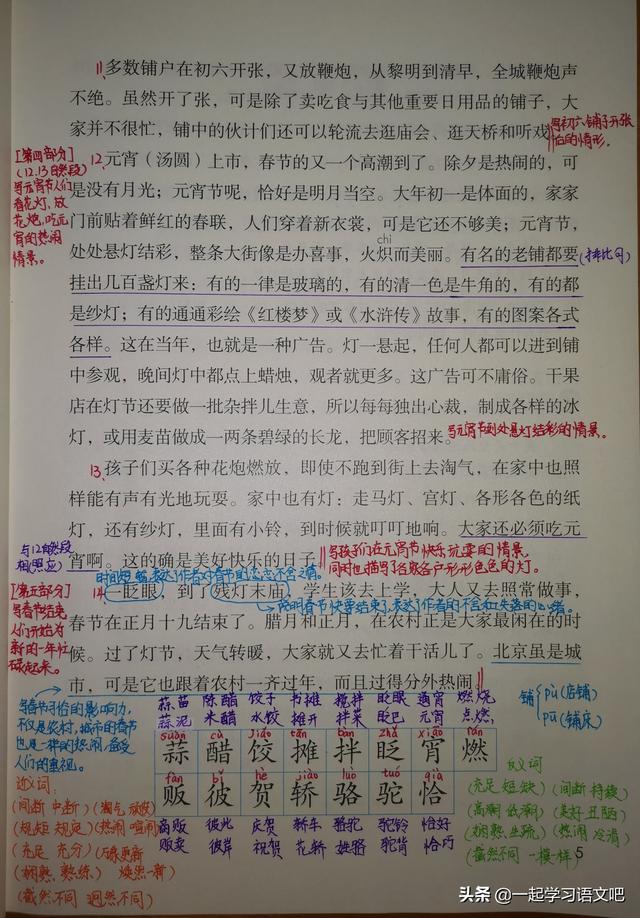 11.多数铺户在初六开张，又放鞭炮，从黎明到清早，全城鞭炮声
不绝。虽然开了张，可是除了卖吃食与其他重要日用品的铺子，大
家并不很忙，铺中的伙计们还可以轮流去逛庙会、逛天桥和听戏。
写初六铺子开张
的情形。
[第四部分]
(12.13自然段)
写元宵节人们
看花灯，放
花炮，吃元
宵的热闹
情景。
12.元宵（汤圆）上市，春节的又一个高潮到了。除夕是热闹的，可
是没有月光；元宵节呢，恰好是明月当空。大年初一是体面的，家家
门前贴着鲜红的春联，人们穿着新衣裳，可是它还不够美；元宵节，
处处悬灯结彩，整条大街像是办喜事，火炽而美丽。有名的老铺都要
chì
(排比句)
挂出几百盏灯来：有的一律是玻璃的，有的清一色是牛角的，有的都
是纱灯；有的通通彩绘《红楼梦》或《水浒传》故事，有的图案各式
各样。这在当年，也就是一种广告。灯一悬起，任何人都可以进到铺
中参观，晚间灯中都点上蜡烛，观者就更多。这广告可不庸俗。干果
店在灯节还要做一批杂拌儿生意，所以每每独出心裁，制成各样的冰
灯，或用麦苗做成一两条碧绿的长龙，把顾客招来。
写元宵节到处悬灯结彩的情景。
13.孩子们买各种花炮燃放，即使不跑到街上去淘气，在家中也照
样能有声有光地玩耍。家中也有灯：走马灯、宫灯、各形各色的纸
灯，还有纱灯，里面有小铃，到时候就叮叮地响。大家还必须吃元
宵啊。这的确是美好快乐的日子。
与12自然段
相(照应)
写孩子们在元宵节快乐玩耍的情景，
同时也描写了各家各户形形色色的灯。
时间短暂，表达了作者对春节的恋恋不舍之情。
[第五部分]
写春节结束，
人们开始为
新的一年忙
碌起来。
14.一眨眼，到了残灯末庙，学生该去上学，大人又去照常做事，
说明春节快要结束了，表达了作者的不舍和失落的心绪。
春节在正月十九结束了。腊月和正月，在农村正是大家最闲在的时
候。过了灯节，天气转暖，大家就又去忙着干活儿了。北京虽是城
市，可是它也跟着农村一齐过年，而且过得分外热闹。
写春节习俗的影响力，
不仅是农村，城市的春节
也是一样的热闹，备受
人们的重视。
铺 pù (店铺)
pū (铺床)
蒜苗 陈醋 饺子 书摊 搅拌 眨眼 通宵 燃烧
蒜泥 米醋 水饺 摊开 拌菜 眨巴 元宵 点燃
suàn cù jiǎo tān bàn zhǎ xiāo rán
蒜 醋 饺 摊 拌 眨 宵 燃
fàn bǐ hè jiào luò tuó qià
贩 彼 贺 轿 骆 驼 恰
商贩 彼此 庆贺 轿车 骆驼 驼铃 恰好
贩卖 彼岸 祝贺 花轿 姓骆 驼背 恰巧
近义词：
(间断 中断) (淘气 顽皮)
(规矩 规定) (热闹 喧闹)
(充足 充分) (万象更新
(娴熟 熟练) 焕然一新)
(截然不同 迥然不同)
反义词
(充足 短缺) (间断 持续)
(高潮 低潮) (美好 丑陋)
(娴熟 生疏) (热闹 冷清)
(截然不同 一模一样)
5
头条 @一起学习语文吧